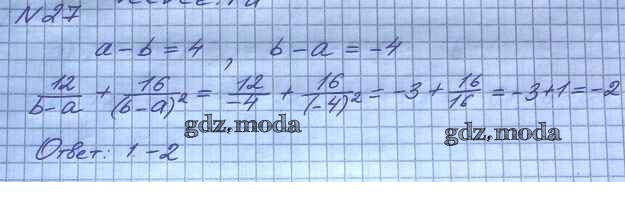 №27
a-b=4, b-a=-4
12/(b-a) + 16/(b-a)² = 12/-4 + 16/(-4)² = -3 + 16/16 = -3+1 = -2
gdz.moda
gdz.moda
Ответ: 1. -2